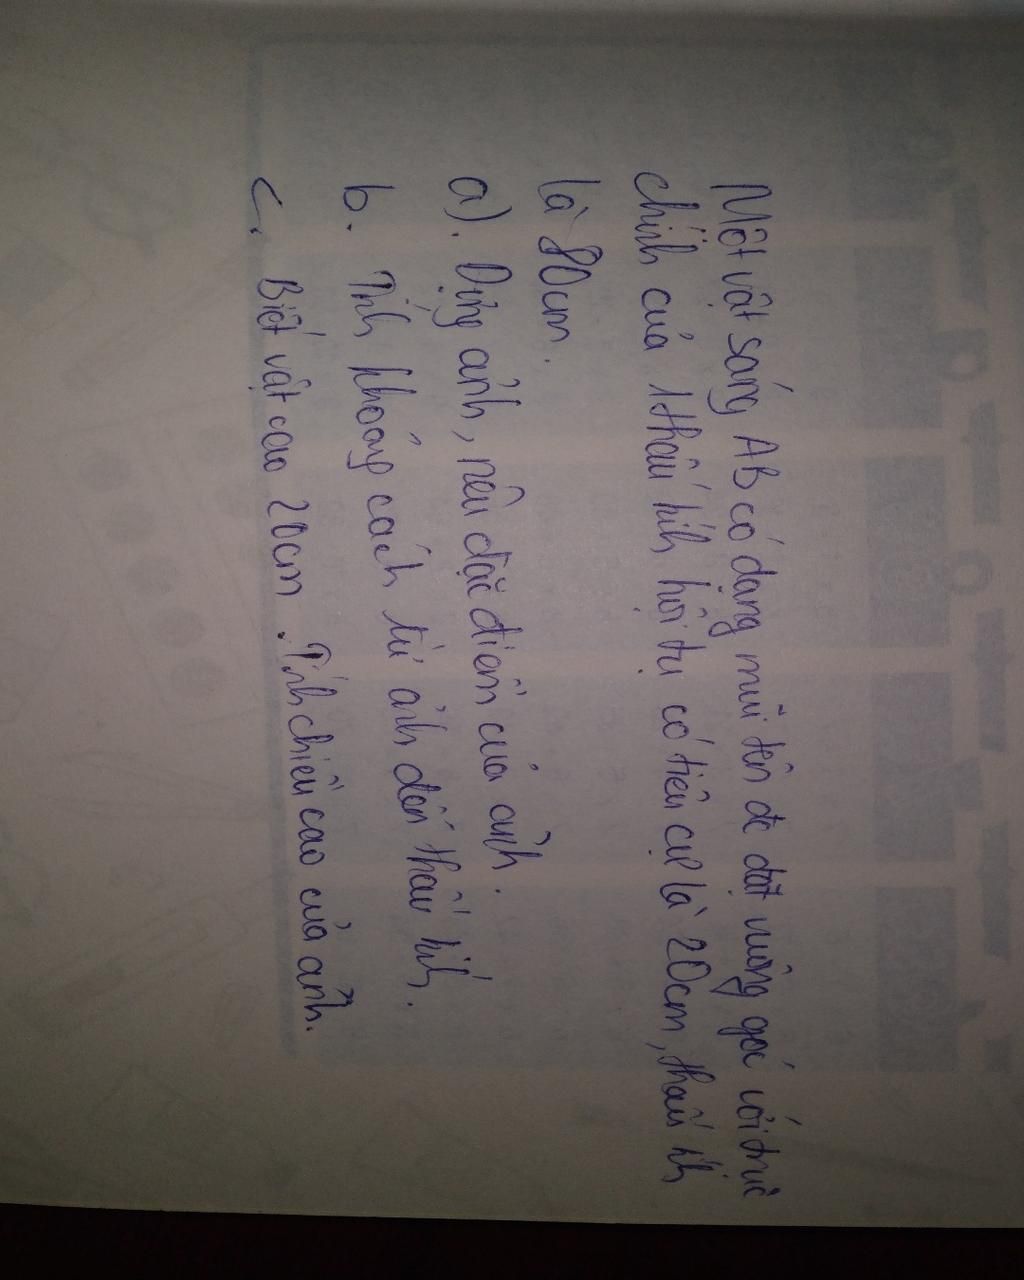 Một vật sáng AB có dạng mũi tên đc đặt vuông góc với trục
chính của 1 thấu kính hội tụ có tiêu cự là 20cm, thấu kính
là 80cm.
a). Dựng ảnh, nêu đặc điểm của ảnh.
b. Tính khoảng cách từ ảnh đến thấu kính.
c. Biết vật cao 20cm. Tính chiều cao của ảnh.